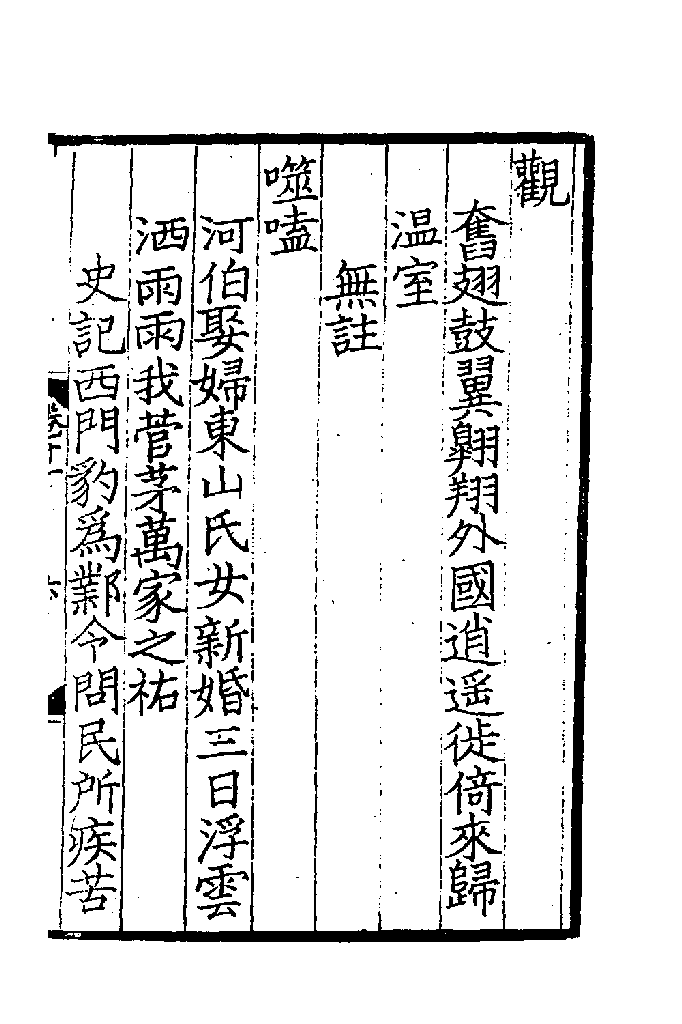 觀
奮翅鼓翼翺翔外國逍遥徙倚來歸
温室
無註
噬嗑
河伯娶婦東山氏女新婚三日浮雲
洒雨雨我菅茅萬家之祐
史記西門豹爲鄴令問民所疾苦
卷十一